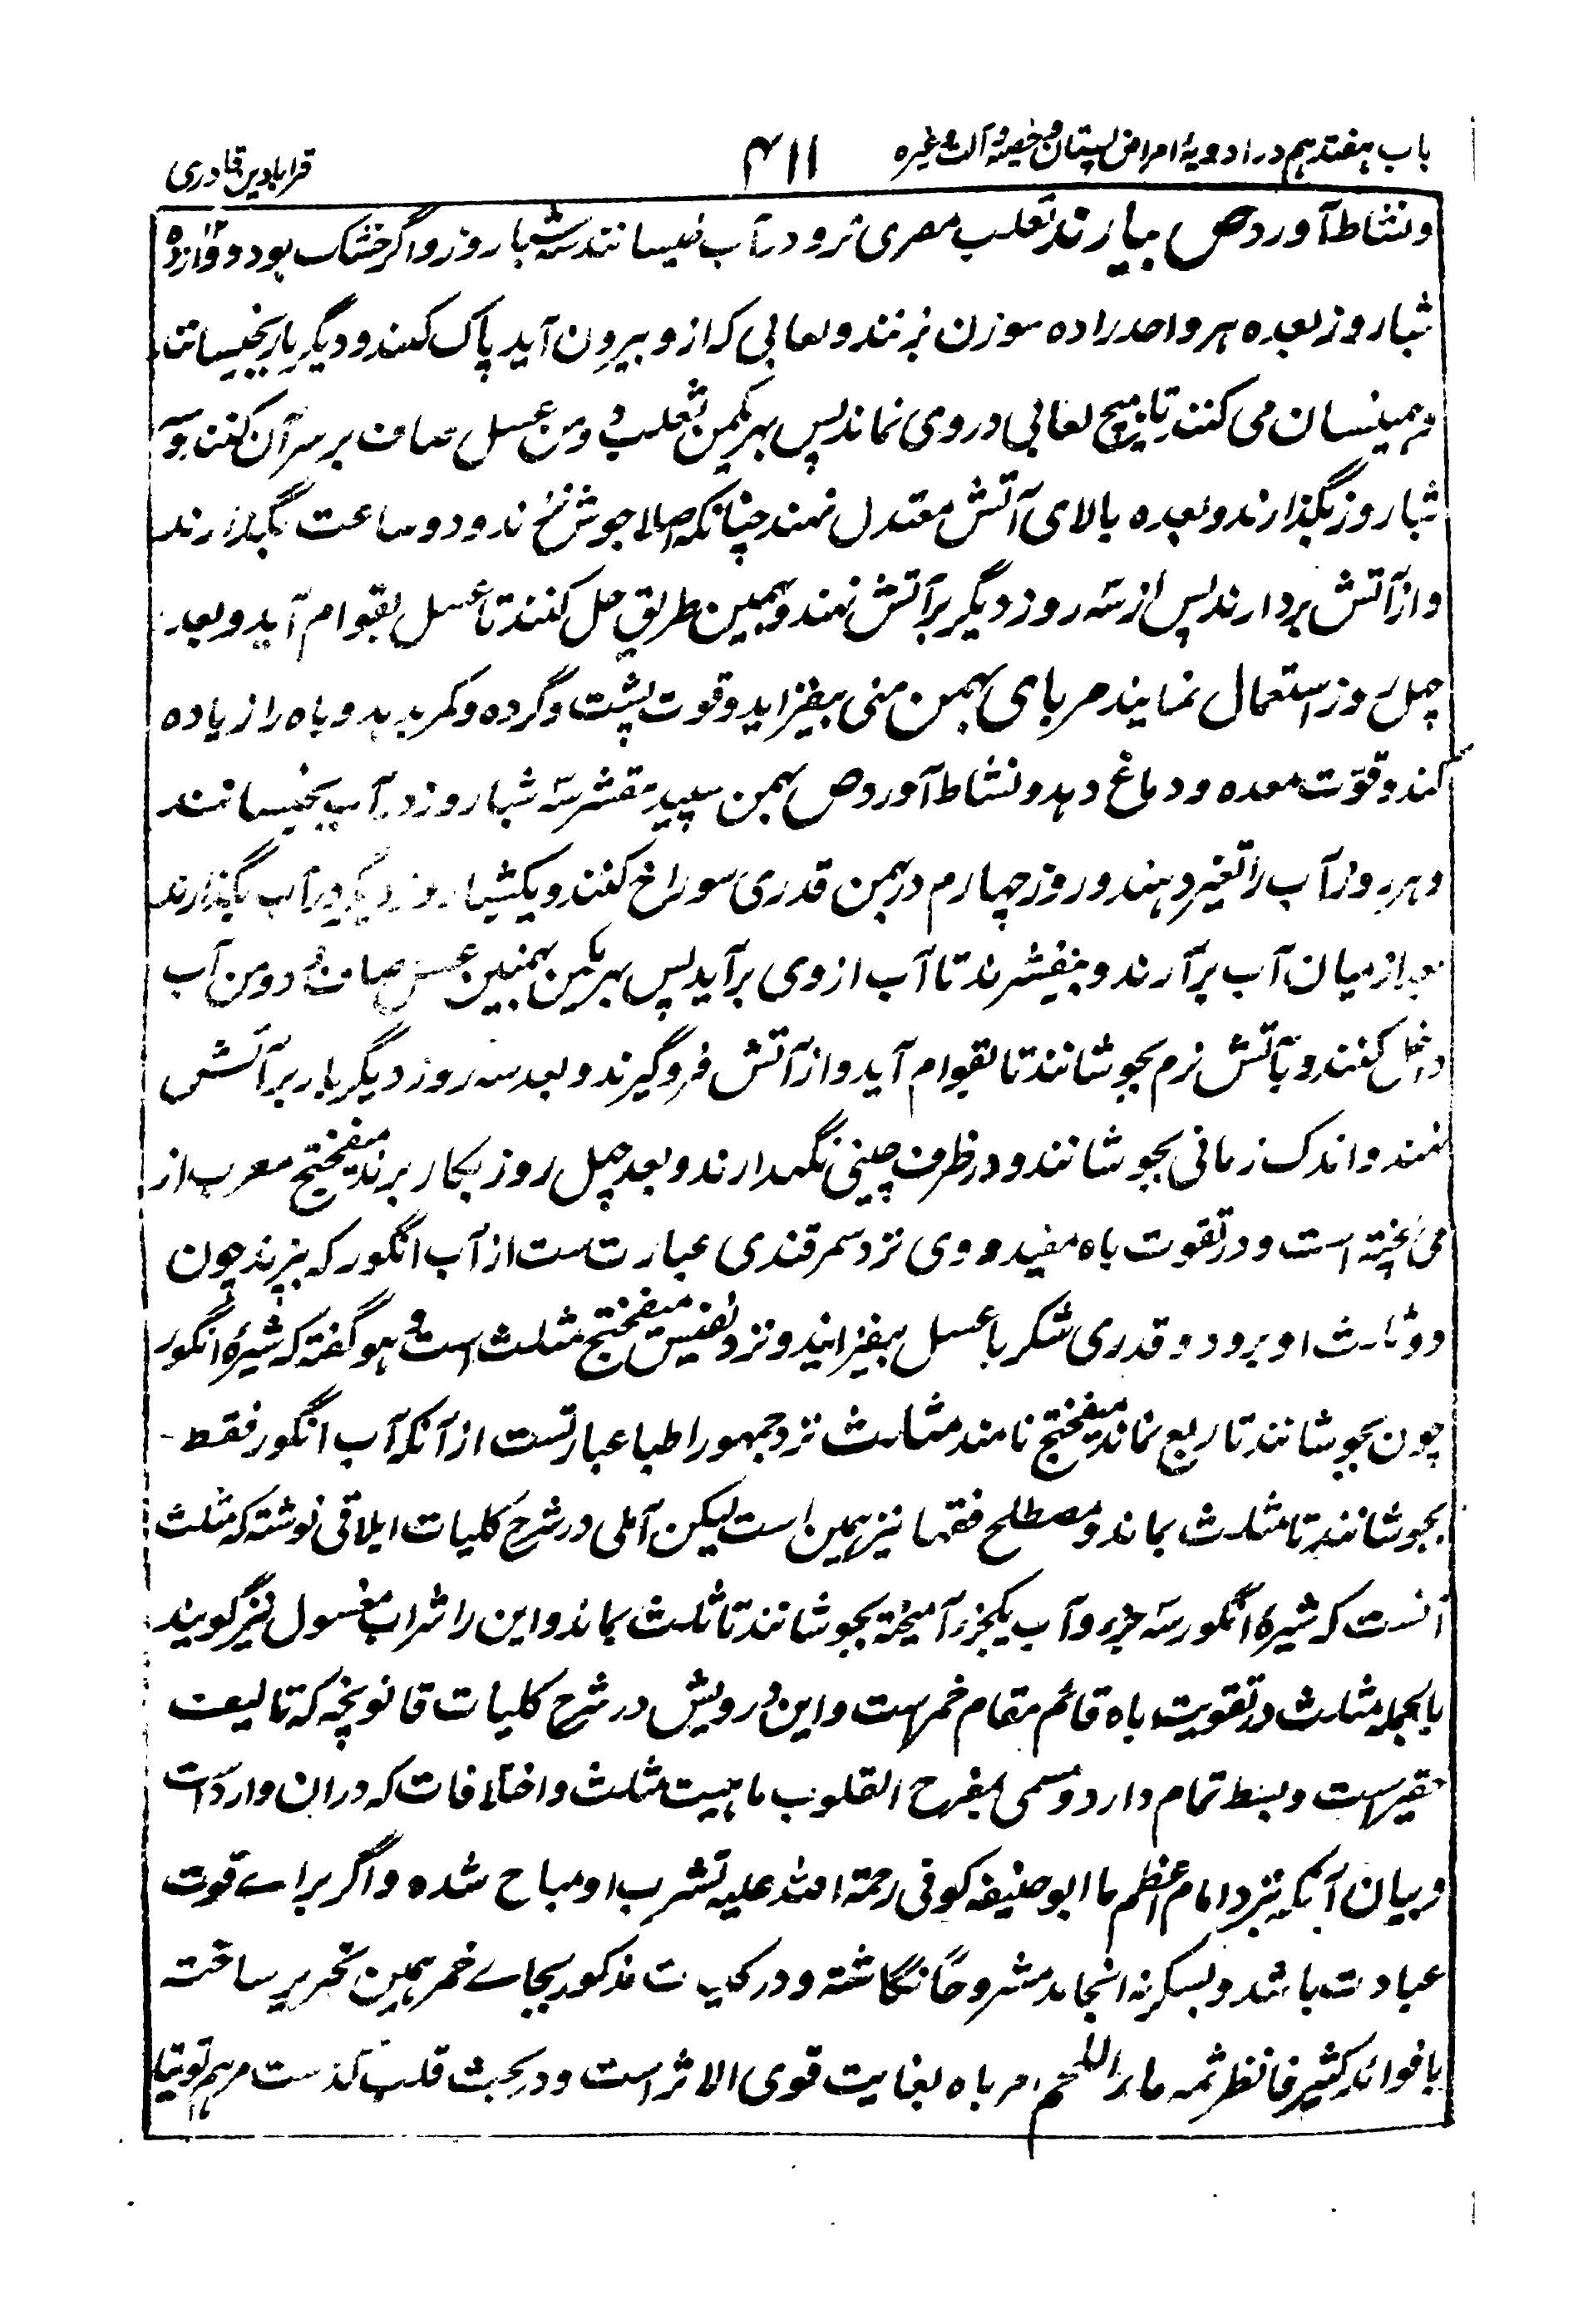 باب هفتدهم در ادویهٔ امراض پستان و خصیه و آلت و غیره
۴۱۱
قرابادین قادری
و نشاط آورد ص بیارند ثعلب مصری تر و در آب خیسانند سه شبا روز و اگر خشک بود دوازده
شبا روز بعده هر واحد را ده سوزن بزنند و لعابی که ازو بیرون آید پاک کنند و دیگر بار بخیسانند
و همینسان می کنند تا هیچ لعابی در وی نماند پس بهر یکمن ثعلب دو من عسل صاف بر سر آن کنند و
شبا روز بگذارند و بعده بالای آتش معتدل نهند چنانکه اصلا جوش نخ ند و دو ساعت بگذارند
و از آتش بردارند پس از سه روز دیگر بر آتش نهند و بهمین طریق حل کنند تا عسل بقوام آید و بعد
چهل روز استعمال نمایند مربای بهمن منی بیفزاید و قوت پشت و گرده و کمر بدهد و باه را زیاده
کند و قوت معده و دماغ دهد و نشاط آورد ص بهمن سپید مقشر سه شبا روز در آب بخیسانند
و هر روز آب را تغیر دهند و روز چهارم در بهمن قدری سوراخ کنند و یکشبا روز دیگر در آب بگذارند
بعد از میان آب برآرند و بیفشرند تا آب از وی برآید پس بهر یکمن بهمنین عسل صاف و دو من آب
داخل کنند و بآتش نرم بجوشانند تا بقوام آید و از آتش فروگیرند و بعد سه روز دیگر بار بر آتش
نهند و اندک زمانی بجوشانند و در ظرف چینی نگهدارند و بعد چهل روز بکار برند میفختج معرب از
می پخته است و در تقوت باه مفید و وی نزد سمرقندی عبارتست از آب انگور که بپزند چون
دو ثلث او برود و قدری شکر با عسل بیفزایند و نزد نفیس میفختج مثلث است و هو گفته که شیرهٔ انگور
چون بجوشانند تا ربع نماند میفختج نامند مثلث نزد جمهور اطبا عبارتست از آنکه آب انگور فقط
بجوشانند تا مثلث بماند و مصطلح فقها نیز همین است لیکن آملی در شرح کلیات ایلاقی نوشته که مثلث
آنست که شیرهٔ انگور سه جزء و آب یکجزء آمیخته بجوشانند تا ثلث بماند و این را شراب مغسول نیز گویند
بالجمله مثلث در تقویت باه قائم مقام خمر هست و این درویش در شرح کلیات قانونچه که تالیف
فقیر هست و بسط تمام دارد و مسمی بمفرح القلوب ماهیت مثلث و اختلافات که دران وارد است
و بیان آنکه نزد امام اعظم ما ابو حنیفه کوفی رحمة الله علیه تشرب او مباح شده و اگر براے قوت
عبادت باشد و بسکر نه انجامد مشروحاً نگاشته و در مذکور بجاے خمر همین تحریر ساخته
با فوائد کثیر فانظر ثمه ماء اللحم در باه بغایت قوی الاثر است و در بحث قلب گذشت مرهم توتیا